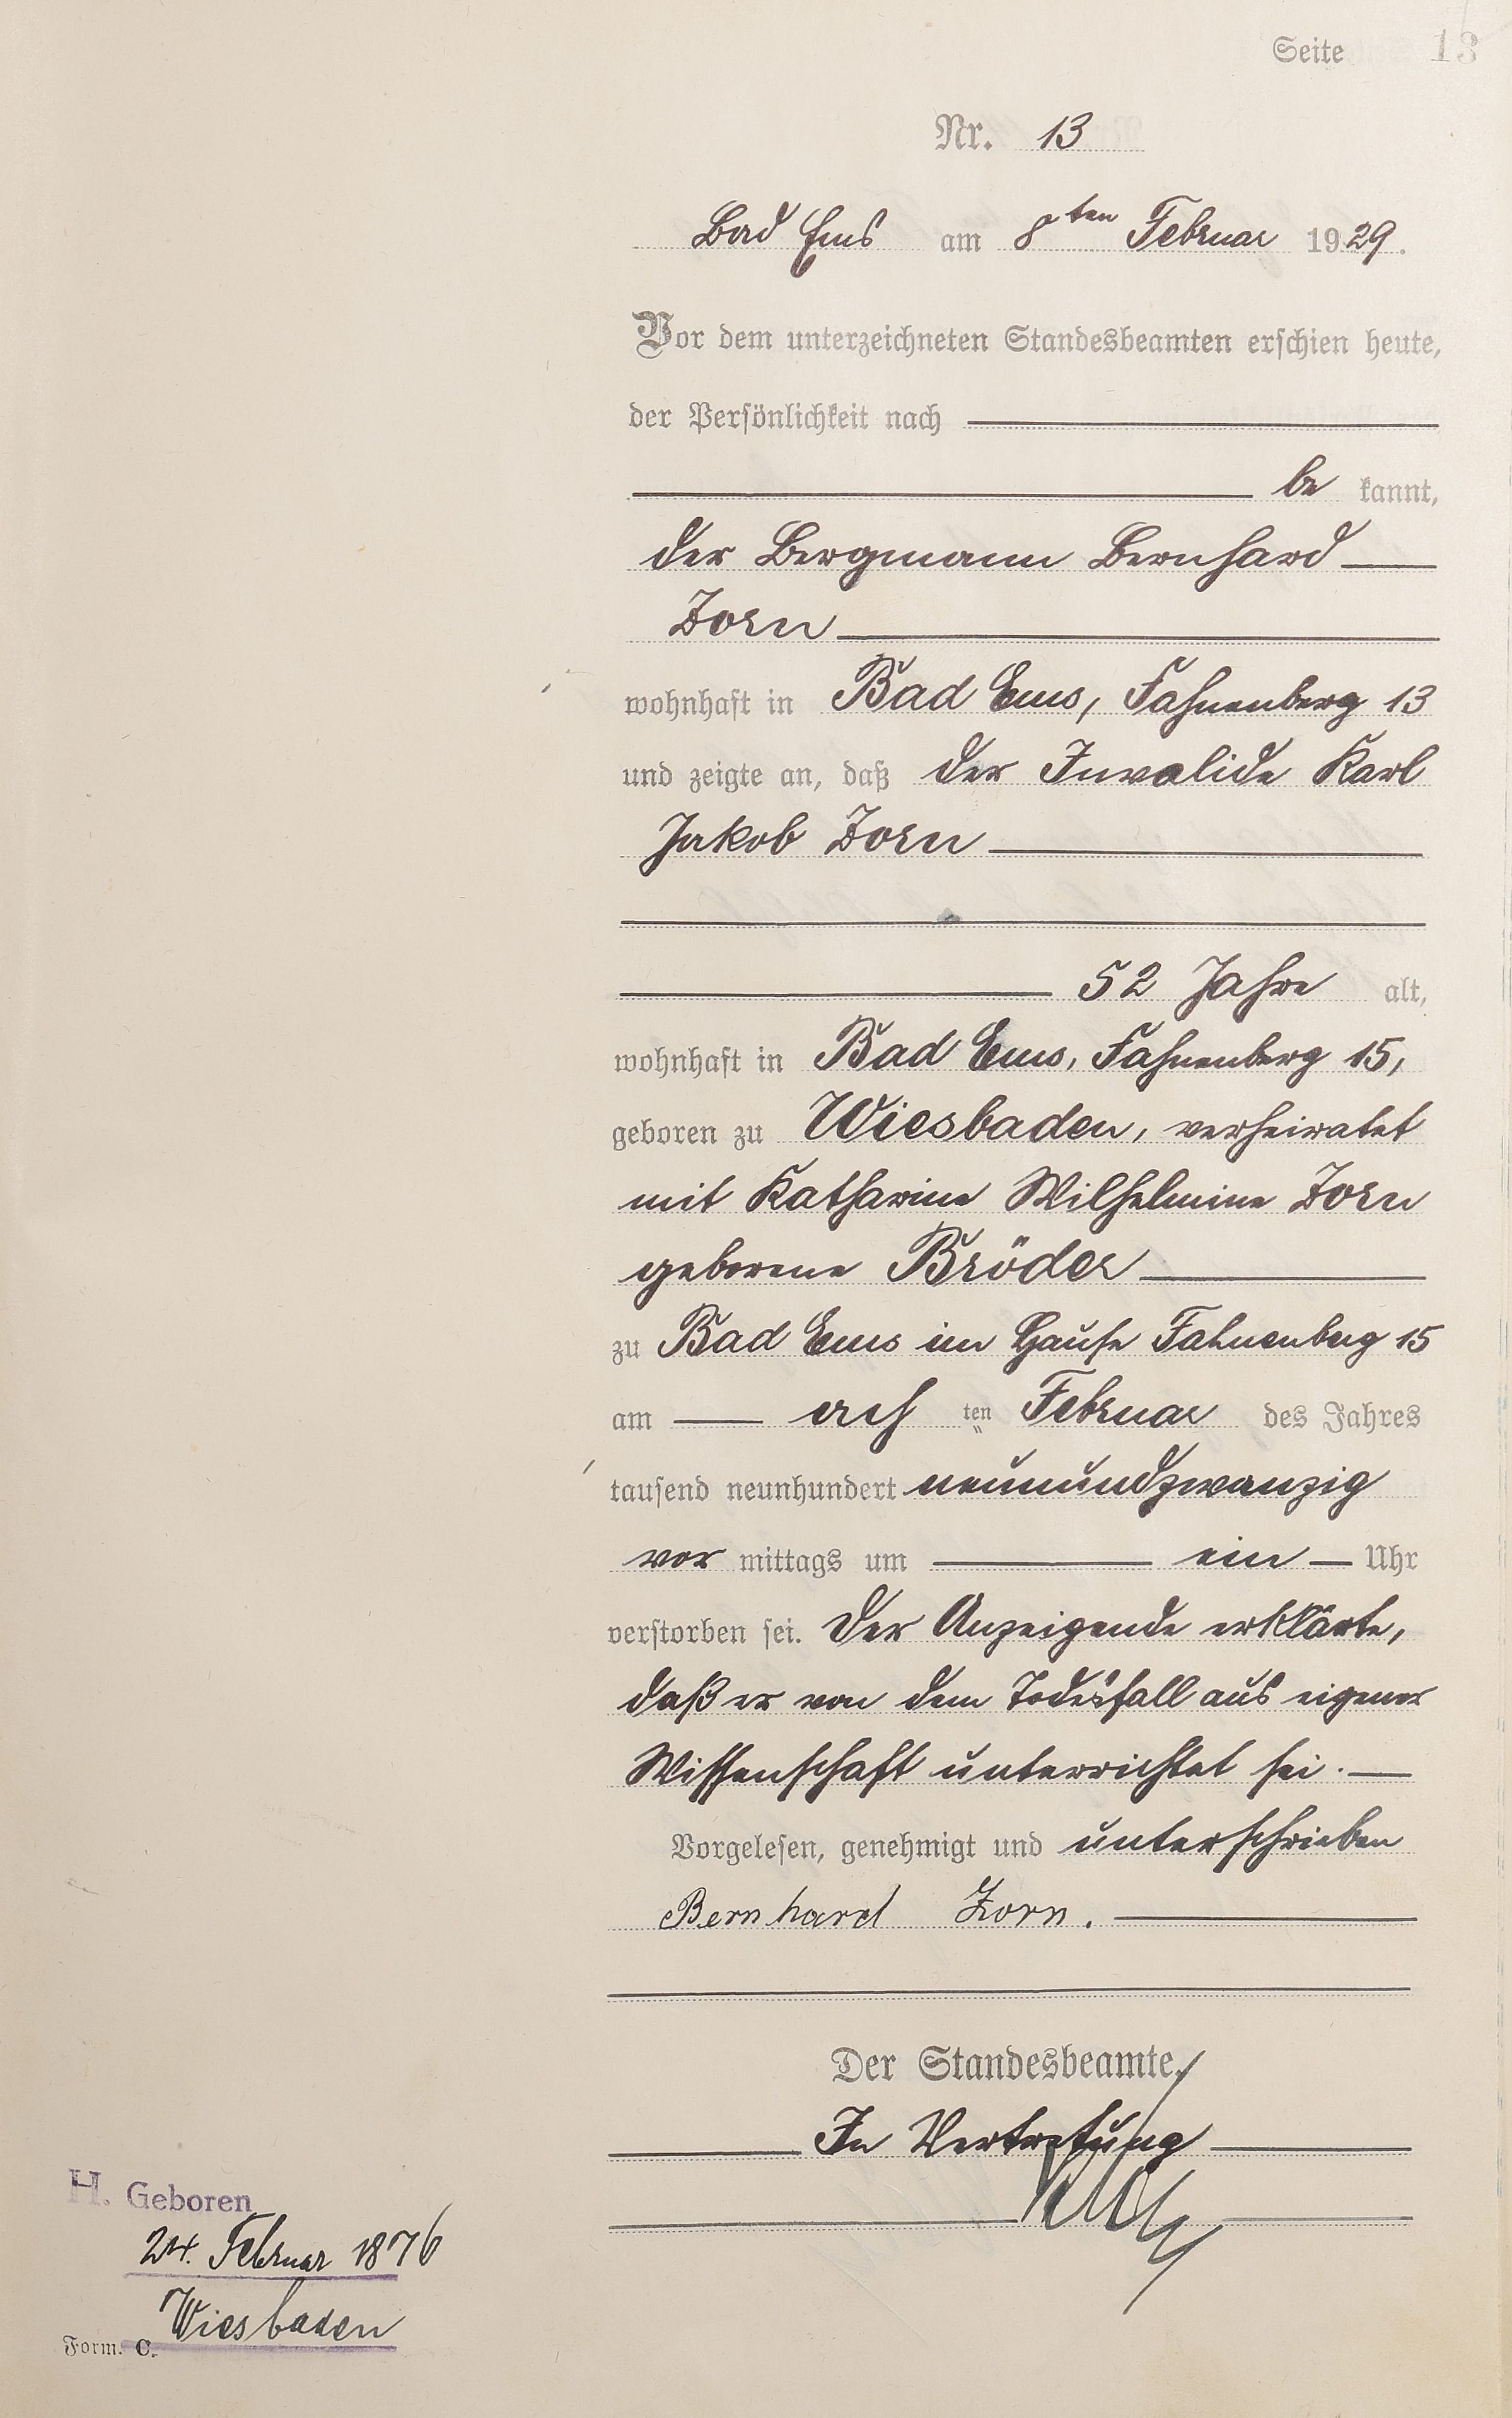 Seite 13
Nr. 13
Bad Ems am 8ten Februar 1929.
Vor dem unterzeichneten Standesbeamten erschien heute,
der Persönlichkeit nach
be kannt,
der Bergmann Bernhard
Zorn
wohnhaft in Bad Ems, Fahnenberg 13
und zeigte an, daß der Invalide Karl
Jakob Zorn
52 Jahre alt,
wohnhaft in Bad Ems, Fahnenberg 15,
geboren zu Wiesbaden, verheiratet
mit Katharina Wilhelmine Zorn
geborene Bröder
zu Bad Ems im Hause Fahnenberg 15
am ach ten Februar des Jahres
tausend neunhundert neunundzwanzig
vor mittags um ein Uhr
verstorben sei. Der Anzeigende erklärte,
daß er von dem Todesfall aus eigener
Wissenschaft unterrichtet sei.
Vorgelesen, genehmigt und unterschrieben
Bernhard Zorn.
Der Standesbeamte.
In Vertretung
H. Geboren
24. Februar 1876
Wiesbaden
Form. C.